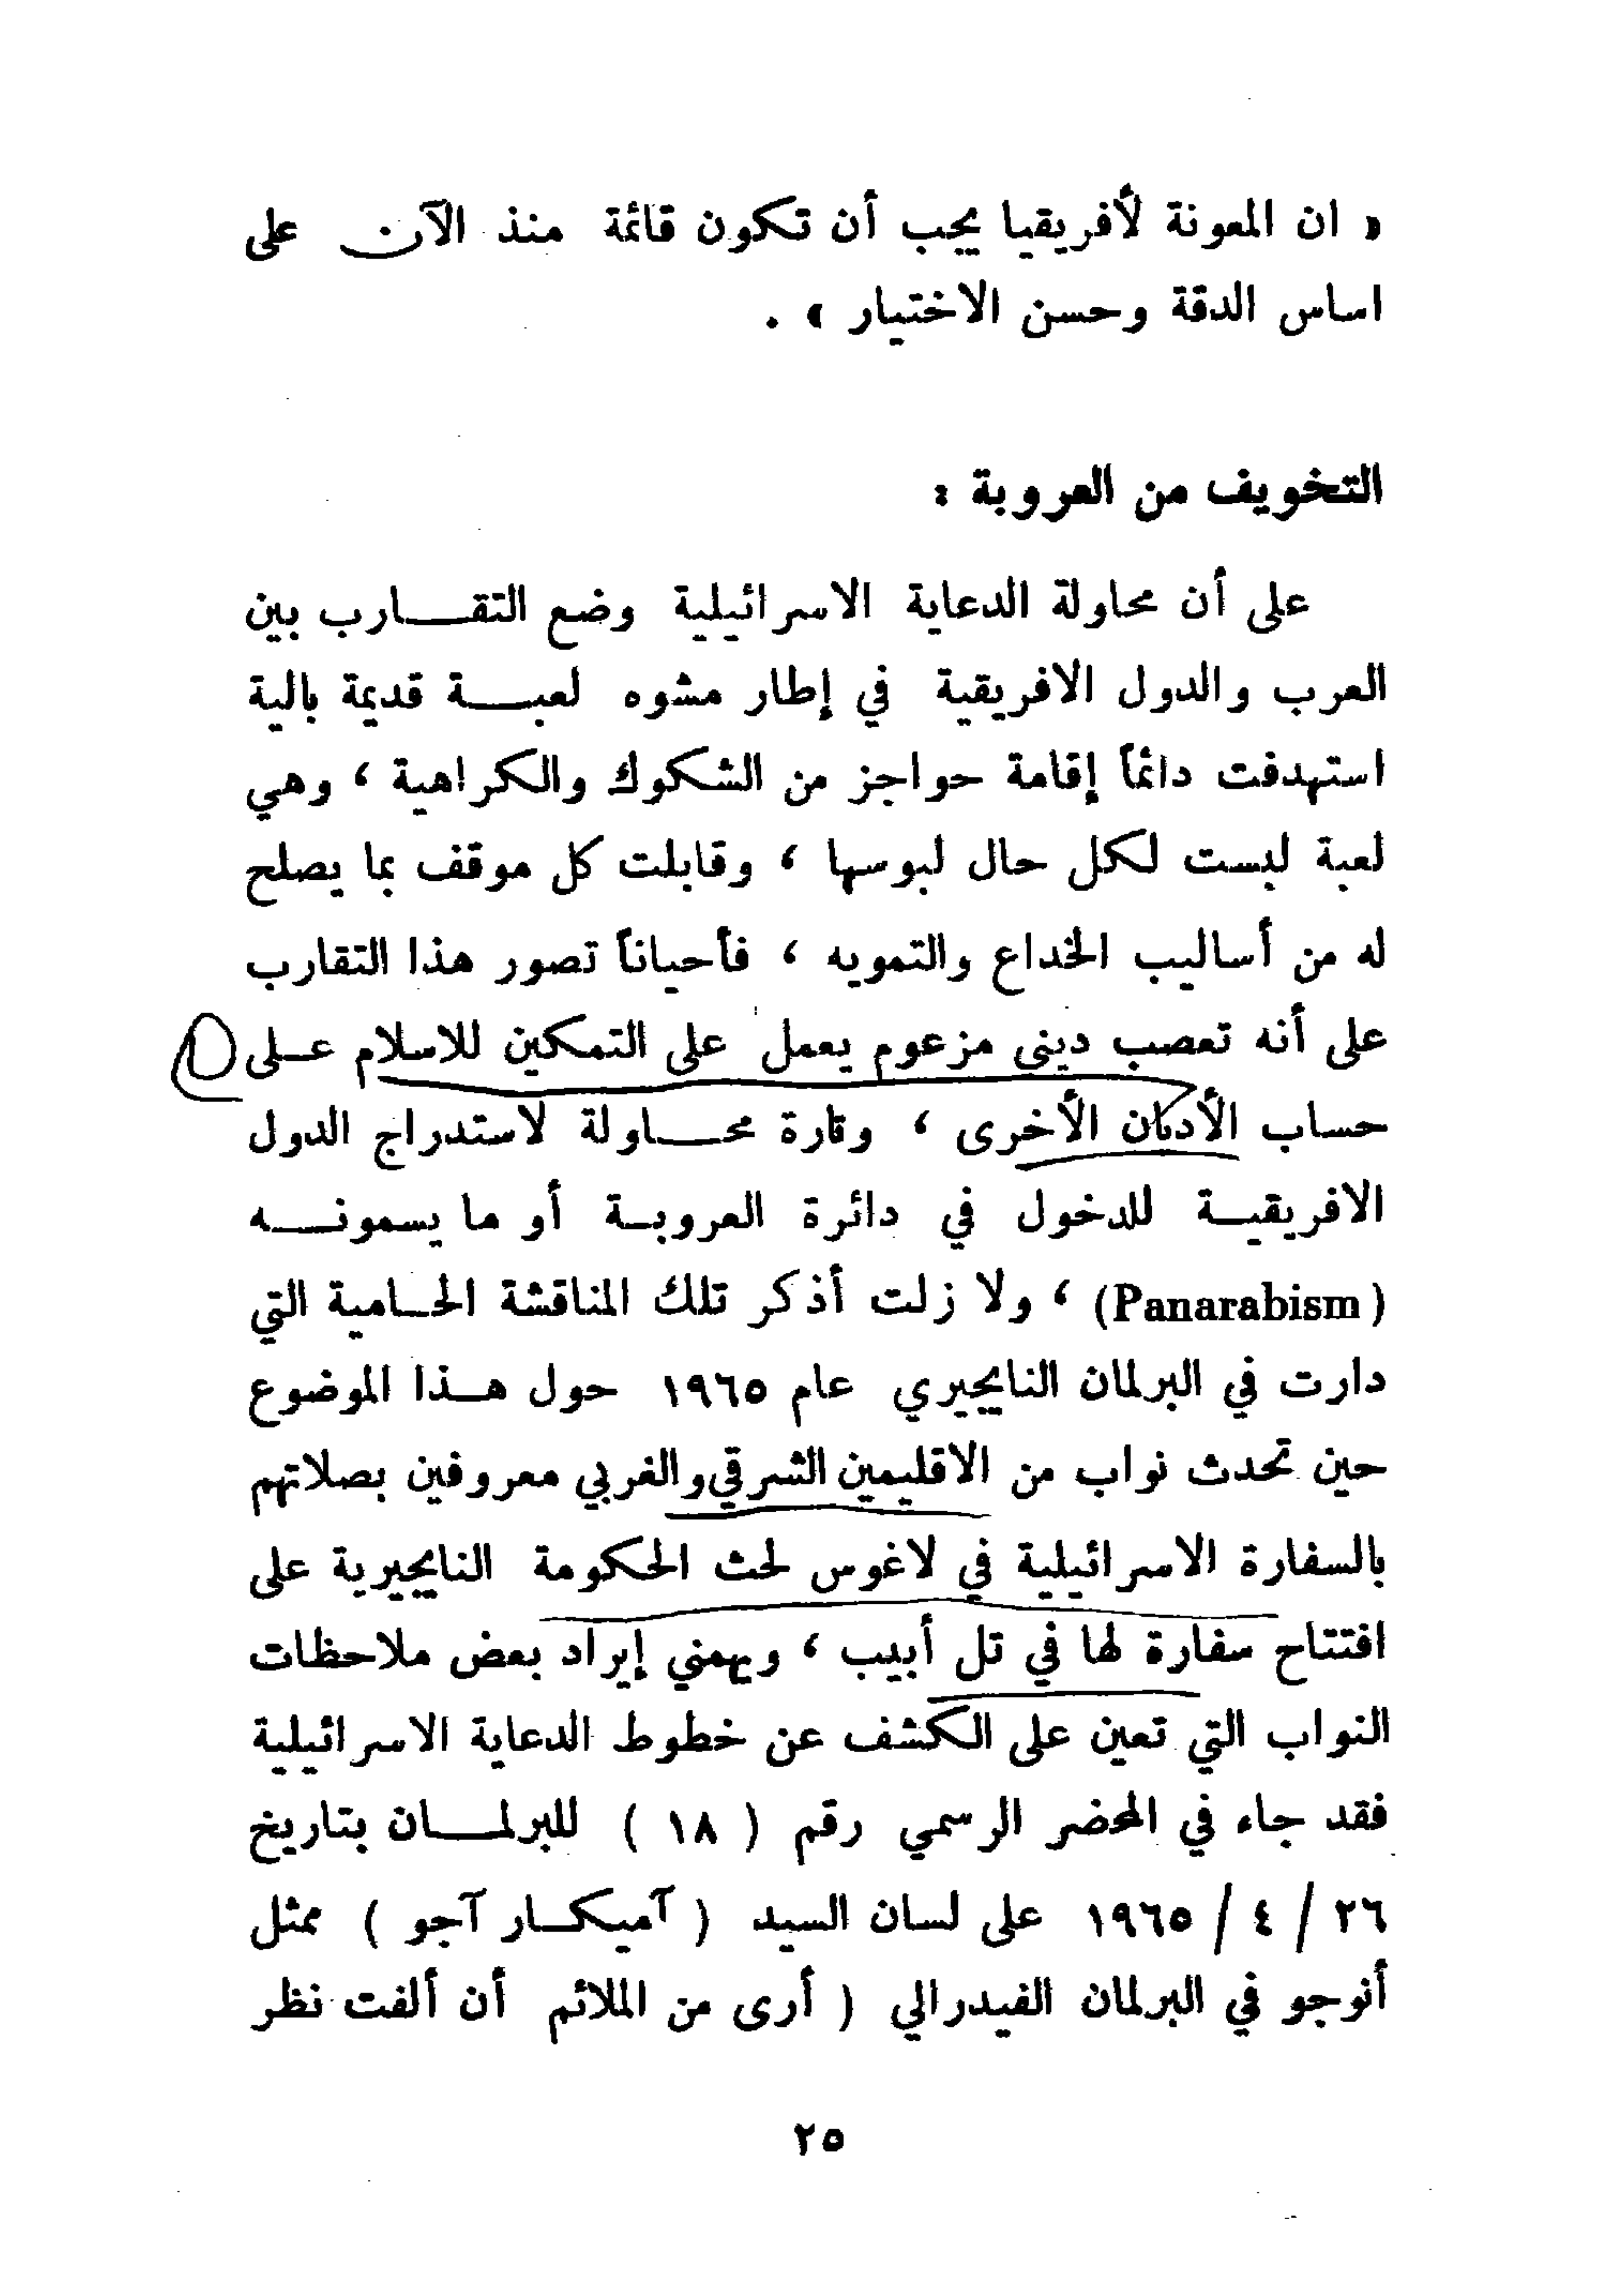 « ان المعونة لأفريقيا يجب أن تكون قائمة منذ الآن على
اساس الدقة وحسن الاختيار » .
التخويف من العروبة :
على أن محاولة الدعاية الاسرائيلية وضع التقـــارب بين
العرب والدول الافريقية في إطار مشوه لعبـــة قديمة بالية
استهدفت دائماً إقامة حواجز من الشكوك والكراهية ، وهي
لعبة لبست لكل حال لبوسها ، وقابلت كل موقف بما يصلح
له من أساليب الخداع والتمويه ، فأحياناً تصور هذا التقارب
على أنه تعصب ديني مزعوم يعمل على التمكين للاسلام عـلى
حساب الأديان الأخرى ، وتارة محـــاولة لاستدراج الدول
الافريقيـة للدخول في دائرة العروبـة أو ما يسمونـــه
(Panarabism) ، ولا زلت أذكر تلك المناقشة الحـامية التي
دارت في البرلمان النايجيري عام ١٩٦٥ حول هـذا الموضوع
حين تحدث نواب من الاقليمين الشرقي والغربي معروفين بصلاتهم
بالسفارة الاسرائيلية في لاغوس لحث الحكومة النايجيرية على
افتتاح سفارة لها في تل أبيب ، ويهمني إيراد بعض ملاحظات
النواب التي تعين على الكشف عن خطوط الدعاية الاسرائيلية
فقد جاء في المحضر الرسمي رقم ( ١٨ ) للبرلمـــان بتاريخ
٢٦ / ٤ / ١٩٦٥ على لسان السيد ( آميكـار آجو ) ممثل
أنوجو في البرلمان الفيدرالي ( أرى من الملائم أن ألفت نظر
٢٥